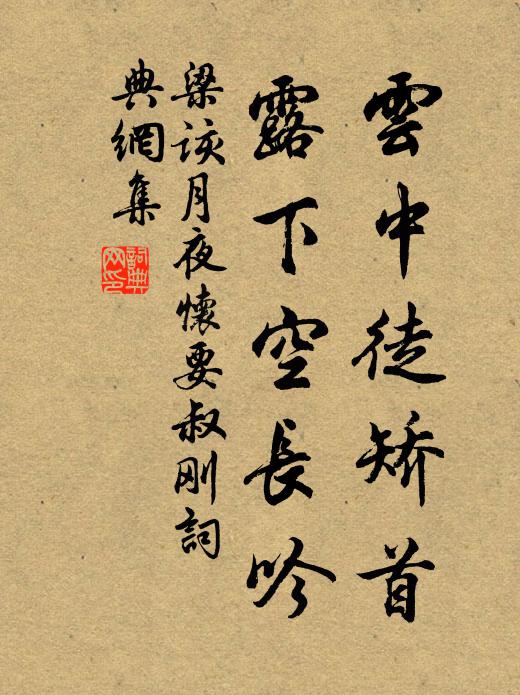 雲中徒矯首
露下空長吟
梁該月夜懷要叔剛詞
典網集
詞典
网印